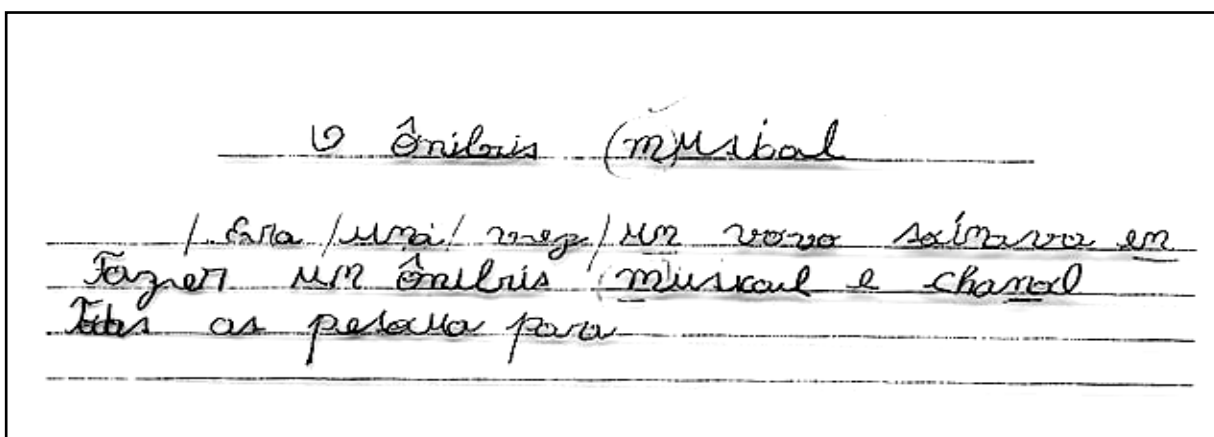 O Ônibuis (m)usical
/ Era / uma / vez / un vovo soinava en
Fazer un Ônibuis (musicaul e chanol
Todas as pesaua para